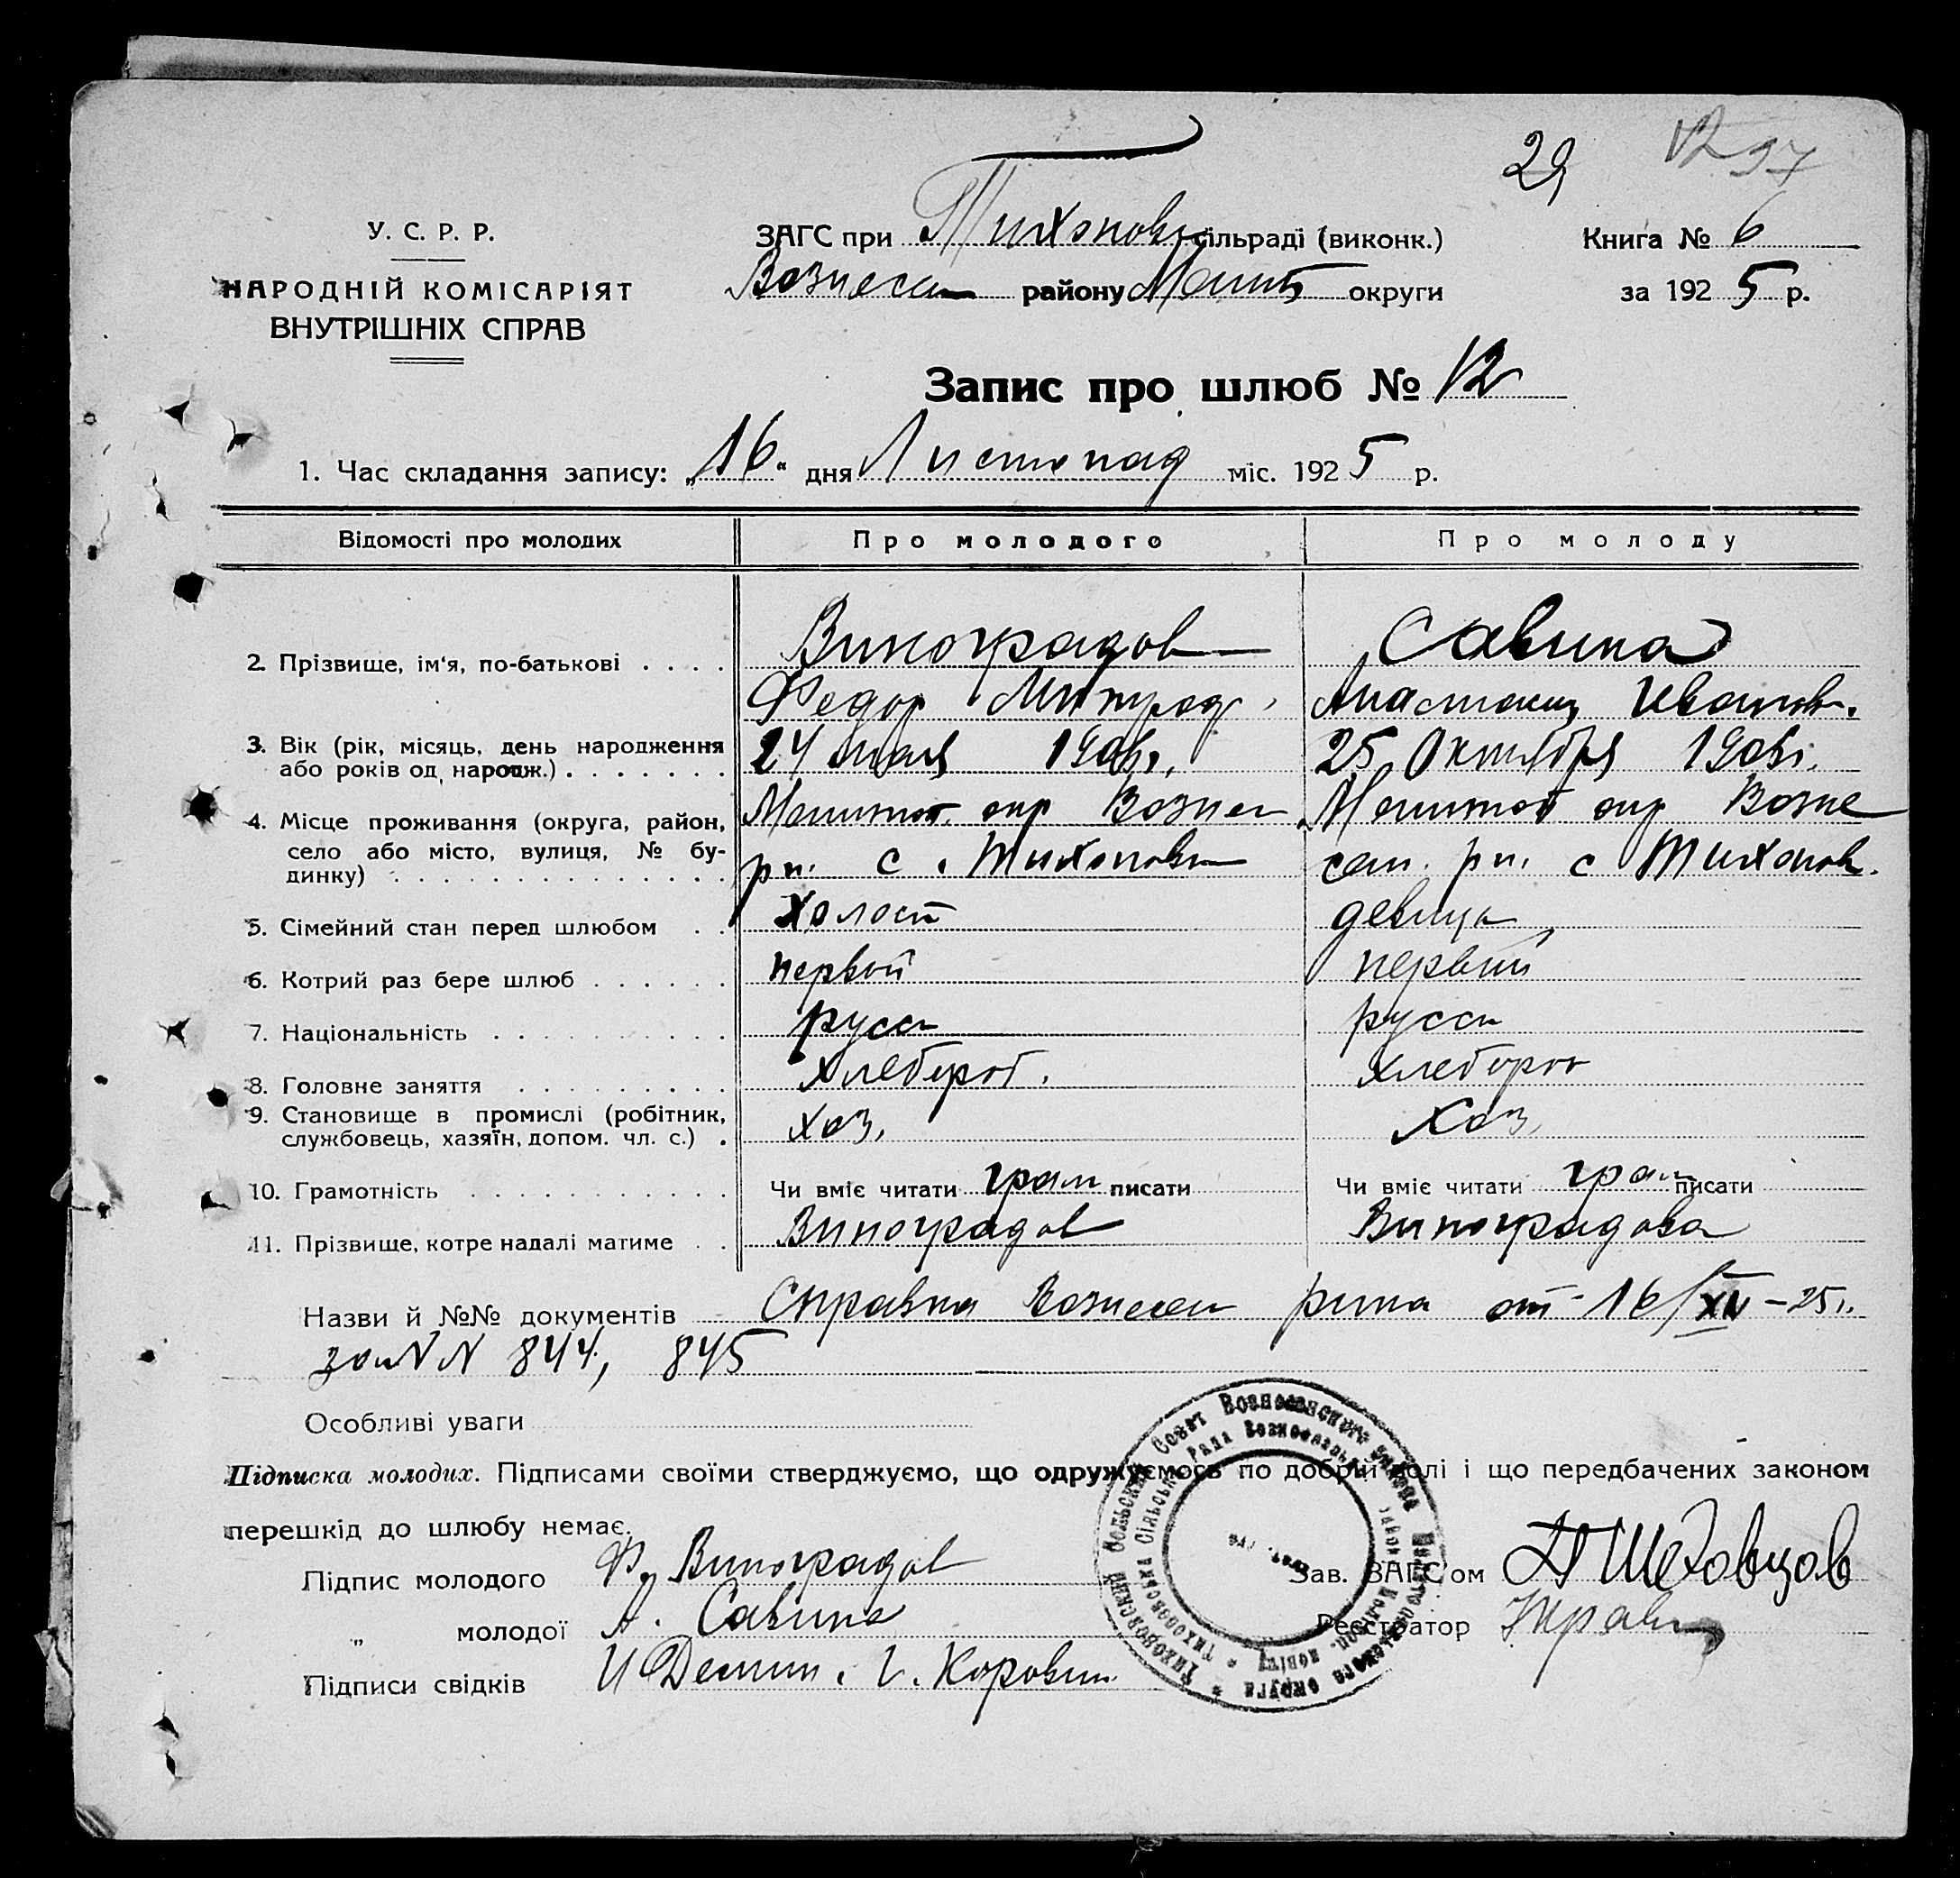 29 12 97
У. С. Р. Р.
НАРОДНІЙ КОМІСАРІЯТ
ВНУТРІШНІХ СПРАВ
ЗАГС при Тихоновс сільраді (виконк.)
Вознесен району Меліт округи
Книга № 6
за 1925 р.
Запис про шлюб № 12
1. Час складання запису: „16“ дня Листопад міс. 1925 р.
Відомості про молодих Про молодого Про молоду
2. Прізвище, ім‘я, по-батькові . . . . Виноградов Савина
Федор Анастасия Иванов.
3. Вік (рік, місяць, день народження 24 190 25 Октября 190
або років од народж.) . . . . . . .
4. Місце проживання (округа, район, Мелитоп. окр Вознес Мелитоп окр Возне
село або місто, вулиця, № бу- рн. с. Тихоновк сен. рн. с Тихонов.
динку) . . . . . . . . . . . . . .
5. Сімейний стан перед шлюбом . . Холост девица
6. Котрий раз бере шлюб . . . . . . первой первый
7. Національність . . . . . . . . . . русск русск
8. Головне заняття . . . . . . . . . Хлебороб. Хлебороб
9. Становище в промислі (робітник, Хоз. Хоз.
службовець, хазяїн, допом. чл. с.) .
10. Грамотність . . . . . . . . . . . Чи вміє читати грам писати Чи вміє читати грам писати
11. Прізвище, котре надалі матиме . . Виноградов Виноградова
Назви й №№ документів Справка Вознесен рика от 16/ -25г.
за NN 844, 845
Особливі уваги
Підписка молодих. Підписами своїми стверджуємо, що одружуємось по добрій волі і що передбачених законом
перешкід до шлюбу немає.
Підпис молодого Ф. Виноградов
Зав. ЗАГС‘ом
„ молодої А. Савина
Реєстратор
Підписи свідків И Демин. Г. Коровин
Тихоновский Сельский Совет Вознесенского района Мелитопольского округа
Тихоновська Сільська Рада Вознесенськ. району Мелітоп. округи